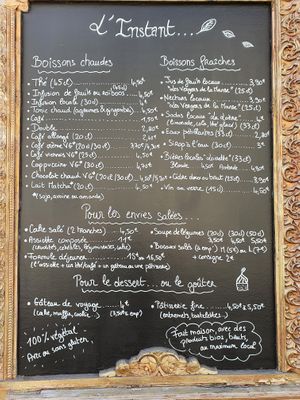 L'Instant...
Boissons chaudes
• Thé (45cl) 4,50€
• Infusion de fruits ou rooibos (45cl) 4,50€
• Infusion locale (30cl) 4€
• Tonic chaud (agrumes & gingembre) 4,50€
• Café 1,50€
• Double 2,80€
• Café allongé (20cl) 2,40€
• Café crème VG* (20/30cl) 3,70/4,30€
• Café viennois VG* (25cl)
• Cappuccino VG* (30cl) 4,50€
• Chocolat chaud VG* (20cl/30cl)
• Lait Matcha* (20cl)
*(soja, avoine ou amande)
Boissons fraîches
• Jus de fruits locaux 3,90€
"Les Vergers de la Meuse" (25cl)
• Nectars locaux 3,90€
"Les Vergers de la Meuse" (25cl)
• Sodas locaux
(limonade, cola, thé glacé) (33cl)
• Eaux pétillantes (33cl)
• Sirop à l'eau (30cl) 3€
• Bières locales (33cl)
Blonde Ambrée
• Cidre doux ou brut (25cl) 3,90€
• Vin au verre (15cl) 4,50€
Pour les envies salées...
• Cake salé (2 tranches) 4,50€
• Assiette composée 11€
(crudités, céréales, légumineuses, cake)
• Formule déjeuner 15€ ou 16,50€
(l'assiette + un thé/café + un gâteau ou une pâtisserie)
• Soupe de légumes (20cl) (30cl) (50cl)
3,50€ 4,50€
• Bocaux salés (à emp) M (5€) ou L (7€)
+ consigne 2€
Pour le dessert... ou le goûter
• Gâteau de voyage 4€
(cake, muffin, cookie...) (3,50€ emp)
• Pâtisserie fine 4,50€ à 5,50€
(entremets, tartelettes...)
100% végétal
Avec ou sans gluten.
Fait maison, avec des
produits bios, bruts,
au maximum local